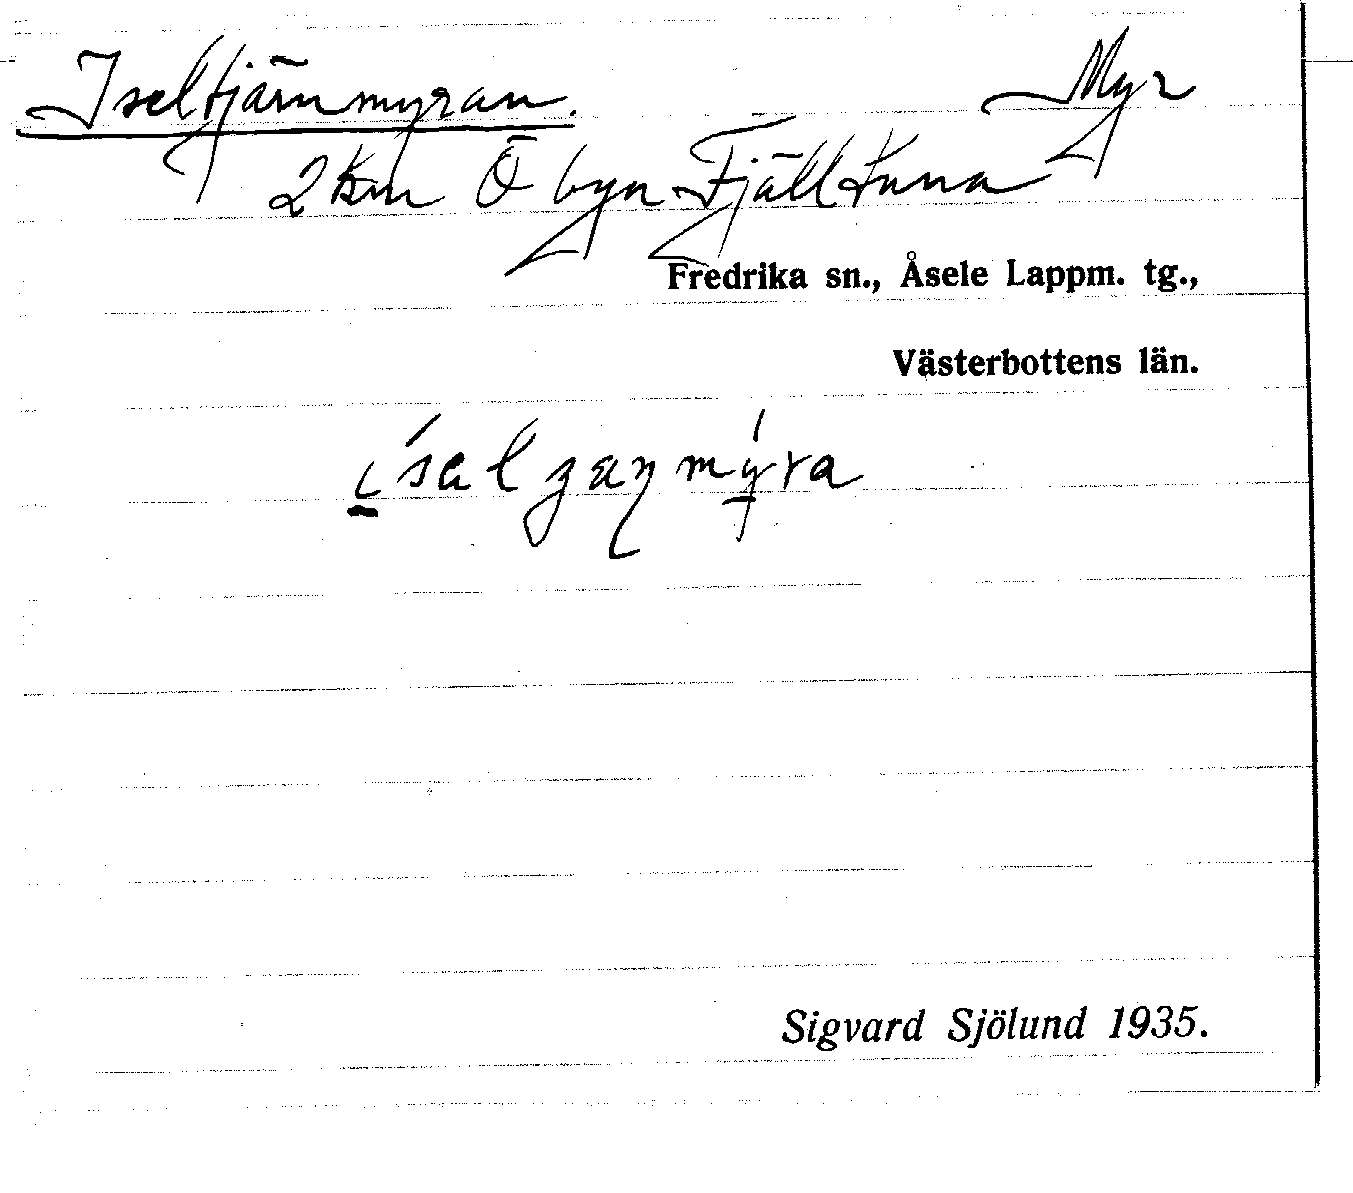 Iseltjärnmyran. Myr
2 km Ö byn Fjälltuna
Fredrika sn., Åsele Lappm. tg.,
Västerbottens län.
Sigvard Sjölund 1935.